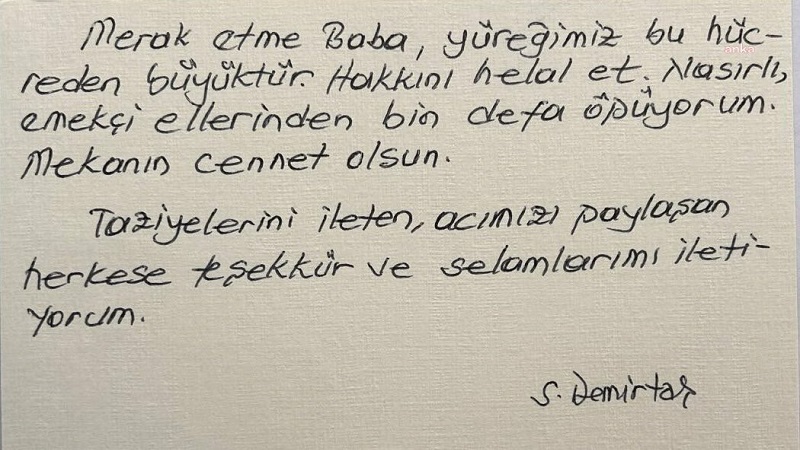 Merak etme Baba, yüreğimiz bu hüc-
reden büyüktür. Hakkını helal et. Nasırlı,
emekçi ellerinden bin defa öpüyorum.
Mekanın cennet olsun.
Taziyelerini ileten, acımızı paylaşan
herkese teşekkür ve selamlarımı ileti-
yorum.
S. Demirtaş
anka